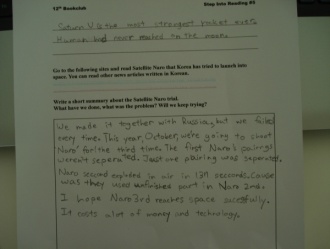 12th Bookclub
Step Into Reading #5
Saturn V is the most strongest rocket ever.
Human had never reached to the moon.
Go to the following sites and read Satellite Naro that Korea has tried to launch into
space. You can read other news articles written in Korean.
Write a short summary about the Satellite Naro trial.
What have we done, what was the problem? Will we keep trying?
We made it together with Russia, but we failed
every time. This year, October, we're going to shoot
Naro for the third time. The first Naro's pairings
weren't seperated. Just one pairing was seperated.
Naro second exploded in air in 137 seconds. Cause
was they used unfinished part in Naro 2nd.
I hope Naro 3rd reaches space sucessfully.
It costs alot of money and technology.